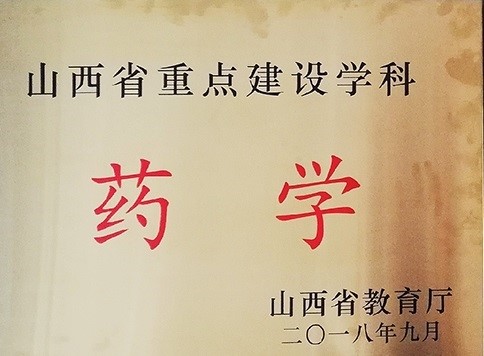 山西省重点建设学科
药学
山西省教育厅
二〇一八年九月